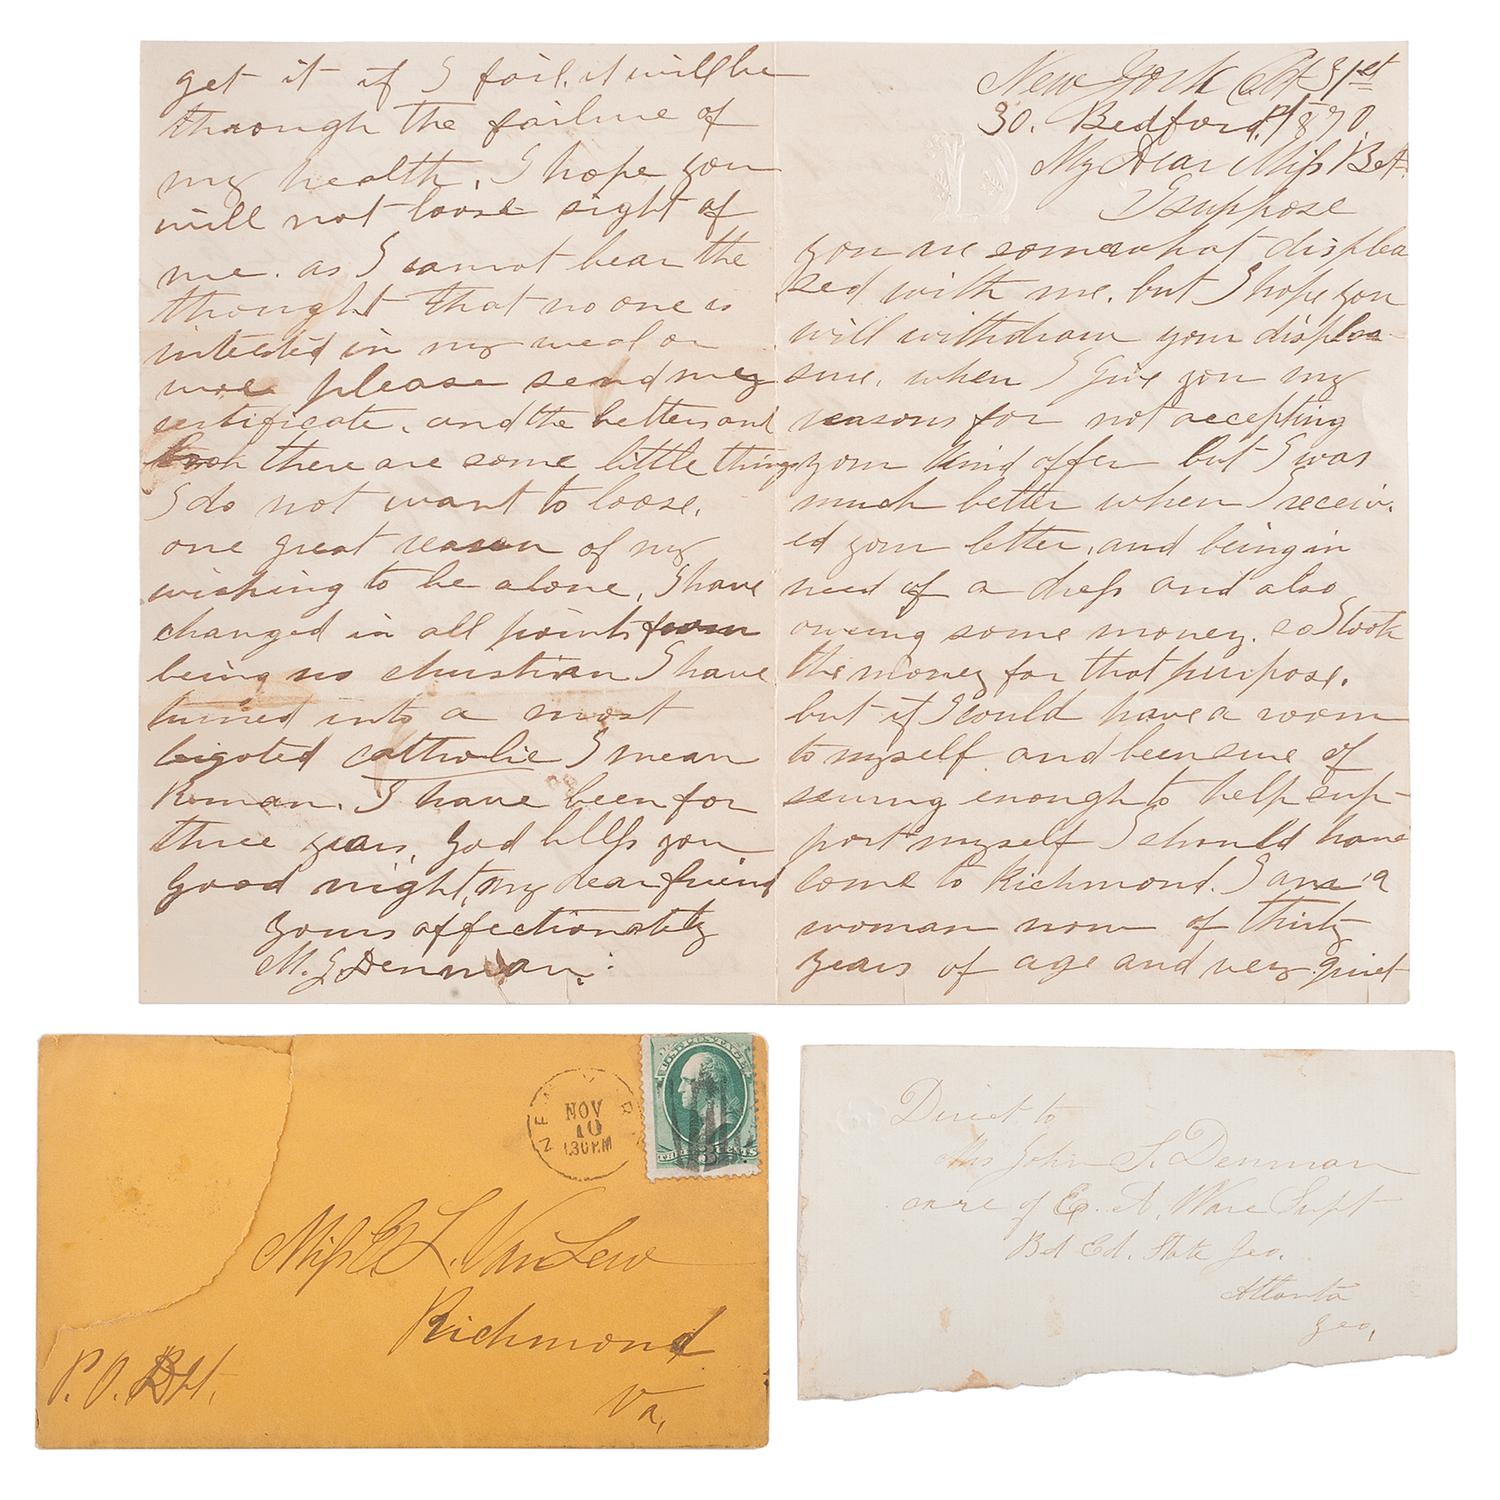 New York Oct 31st
30. Bedford Pl 1870
My Dear Miss Bet.
I suppose
you are somewhat displea
sed with me. but I hope you
will withdraw your displea
sure, when I give you my
reasons for not accepting
your kind offer but I was
much better when I receiv.
ed your letter, and being in
need of a dress and also
oweing some money. so I took
the money for that purpose.
but if I could have a room
to myself and been sure of
sewing enough to help sup-
port myself I should have
come to Richmond. I am a
woman now of thirty
years of age and very quiet
get it if I fail. it will be
through the failure of
my health. I hope you
will not loose sight of
me. as I cannot bear the
thought that no one is
intested in my weal or
woe please send my
certificate, and the letters and
book there are some little things
I do not want to loose.
one great reason of my
wishing to be alone, I have
changed in all points from
being no christian I have
turned into a most
bigoted catholic I mean
Roman. I have been for
three years, God bless you
good night, my dear friend
yours affectionately
M. J. Denman.
NEW
NOV
10
1.30 P.M
U.S. POSTAGE
THREE CENTS
Miss E L. Van Lew
Richmond
P.O. Dpt.
Va,
Direct to
Mrs John S. Denman
care of E. A. Ware Supt
Bd Ed. State Geo.
Atlanta
Geo,